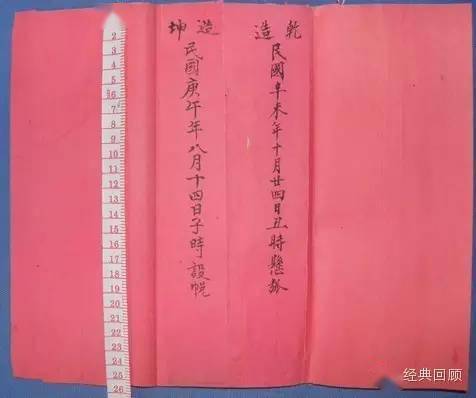 乾造
民國辛未年十月廿四日丑時懸弧
坤造
民國庚午年八月十四日子時設帨
2
3
4
5
6
7
8
9
10
11
12
13
14
15
16
17
18
19
20
21
22
23
24
25
26
经典回顾